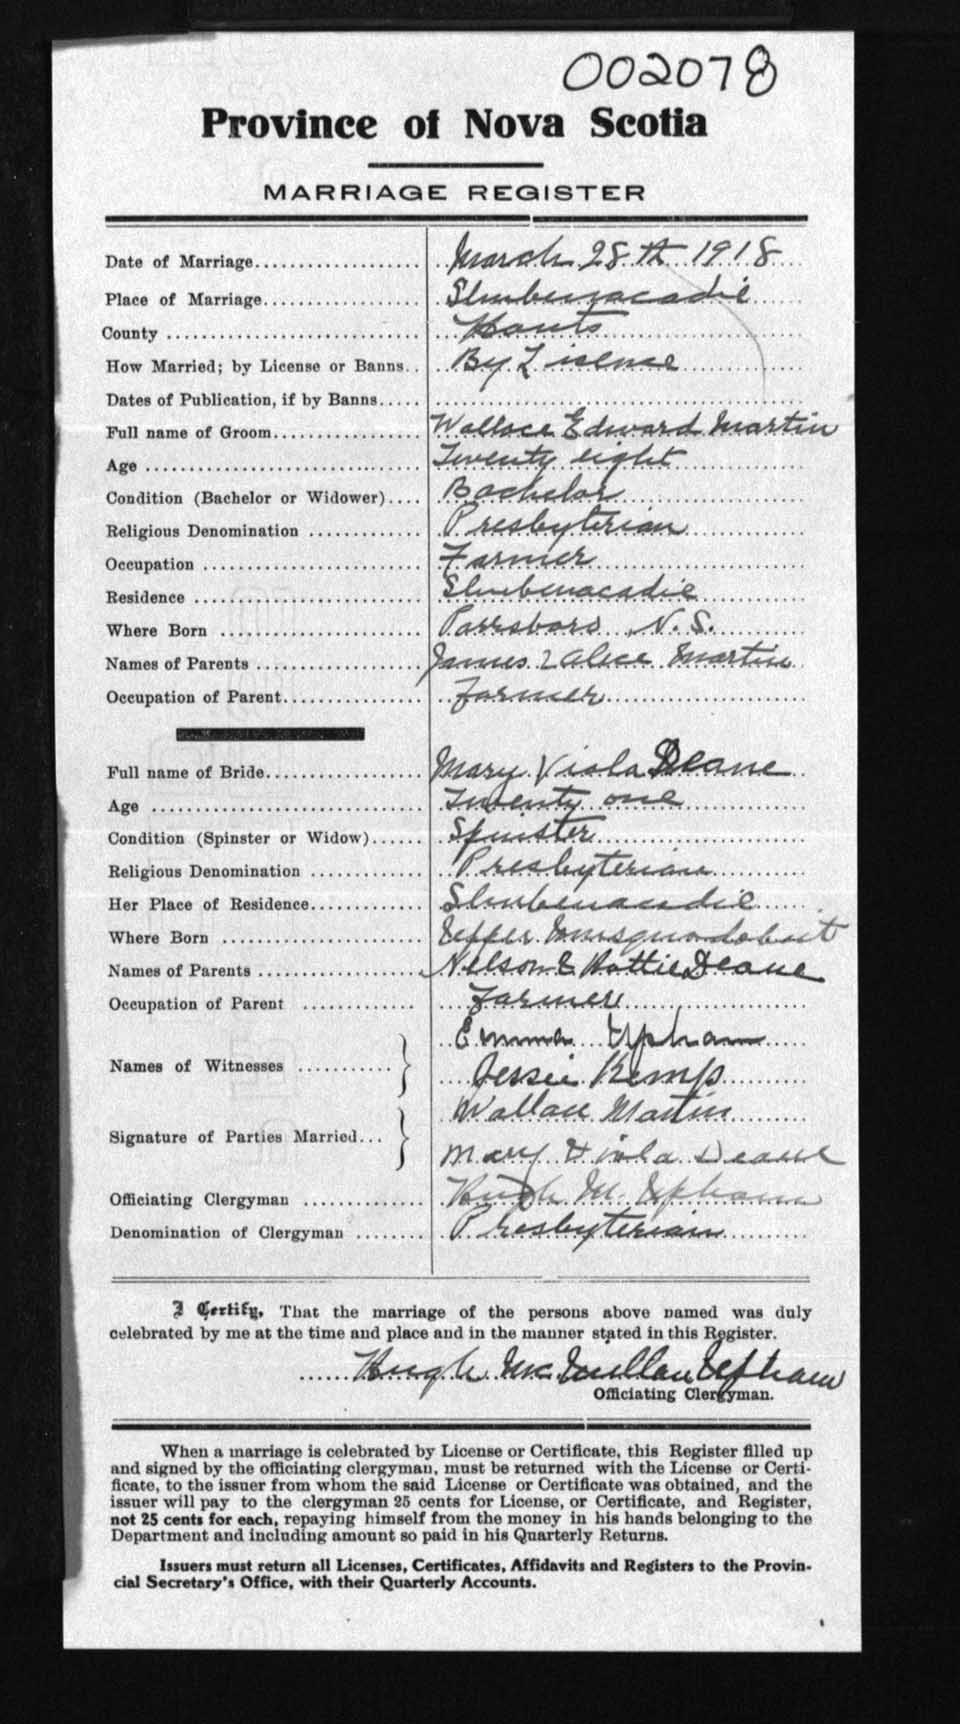 002078
Province of Nova Scotia
MARRIAGE REGISTER
Date of Marriage.................... March 28th 1918
Place of Marriage.................. Shubenacadie
County .............................. Hants
How Married; by License or Banns.. By Lisense
Dates of Publication, if by Banns.....
Full name of Groom................. Wallace Edward Martin
Age ................................. Twenty eight
Condition (Bachelor or Widower).... Bachelor
Religious Denomination ............. Presbyterian
Occupation ......................... Farmer
Residence .......................... Shubenacadie
Where Born ........................ Parrsboro N.S.
Names of Parents ................... James & Alice Martin
Occupation of Parent................ Farmer
Full name of Bride.................. Mary Viola Deane
Age ................................ Twenty one
Condition (Spinster or Widow)...... Spinster
Religious Denomination ............. Presbyterian
Her Place of Residence............. Shubenacadie
Where Born ........................ Upper Musquodoboit
Names of Parents ................... Nelson & Hattie Deane
Occupation of Parent ............. Farmer
Names of Witnesses ........... } Emma Upham
Jessie Kemp
Signature of Parties Married... } Wallace Martin
Mary Viola Deane
Officiating Clergyman ............. Hugh M. Upham
Denomination of Clergyman ........ Presbyterian
I Certify, That the marriage of the persons above named was duly
celebrated by me at the time and place and in the manner stated in this Register.
...... Hugh McMillan Upham
Officiating Clergyman.
When a marriage is celebrated by License or Certificate, this Register filled up
and signed by the officiating clergyman, must be returned with the License or Certi-
ficate, to the issuer from whom the said License or Certificate was obtained, and the
issuer will pay to the clergyman 25 cents for License, or Certificate, and Register,
not 25 cents for each, repaying himself from the money in his hands belonging to the
Department and including amount so paid in his Quarterly Returns.
Issuers must return all Licenses, Certificates, Affidavits and Registers to the Provin-
cial Secretary's Office, with their Quarterly Accounts.